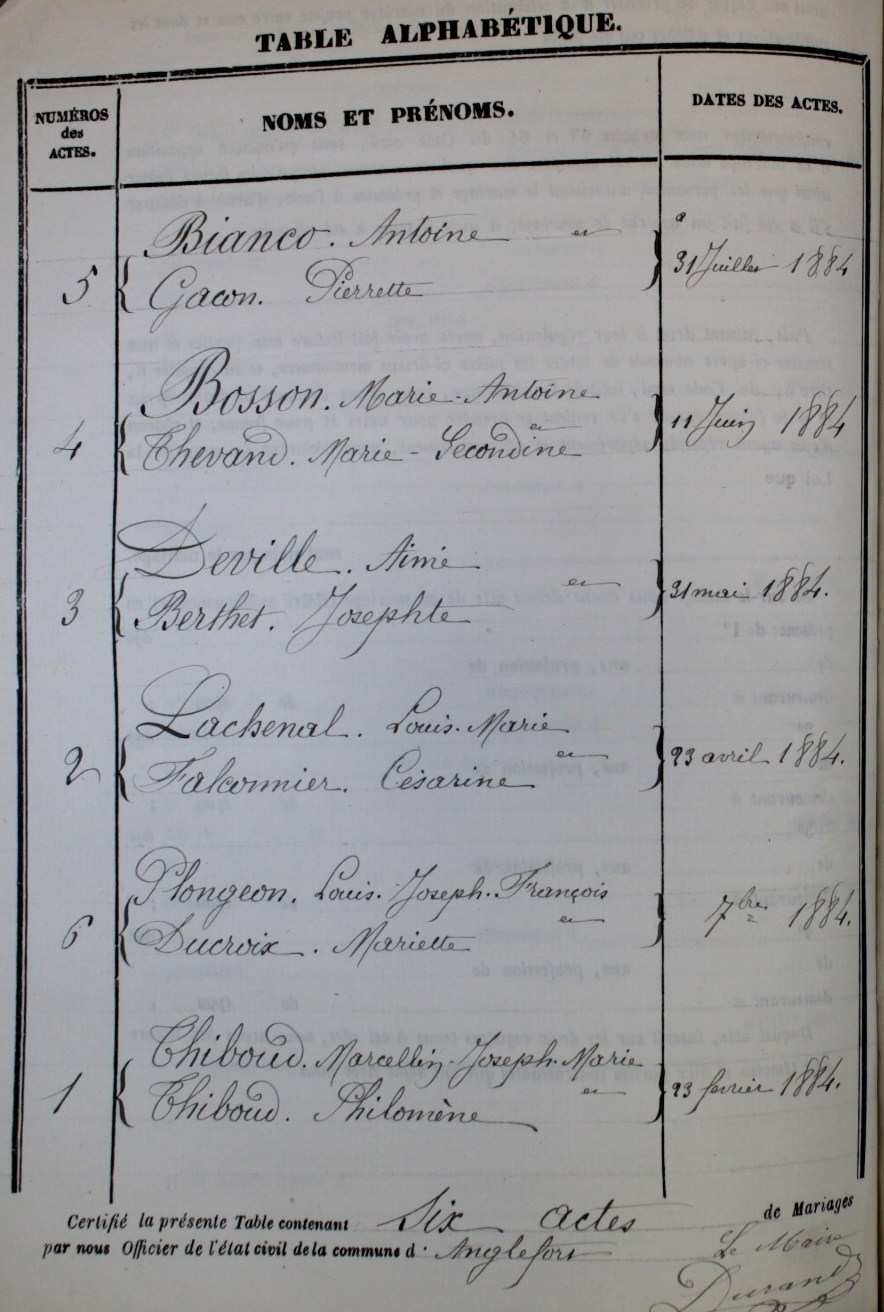 TABLE ALPHABÉTIQUE.
NUMÉROS
des
ACTES.
NOMS ET PRÉNOMS.
DATES DES ACTES.
Bianco. Antoine et
5 { Gacon. Pierrette } 31 Juillet 1884
Bosson. Marie-Antoine
et
4 { Thevand. Marie-Secondine } 11 Juin 1884
Deville. Aimé
et
3 { Berthet. Josephte } 31 mai 1884.
Lachenal. Louis-Marie
et
2 { Falconnier. Césarine } 23 avril 1884.
Plongeon. Louis-Joseph-François
et
6 { Ducroix. Mariette } 7bre 1884.
Thiboud. Marcellin-Joseph-Marie
et
1 { Thiboud. Philomène } 23 fevrier 1884.
Certifié la présente Table contenant Six actes de Mariages
par nous Officier de l'état civil de la commune d'Anglefort
Le Maire
Durand